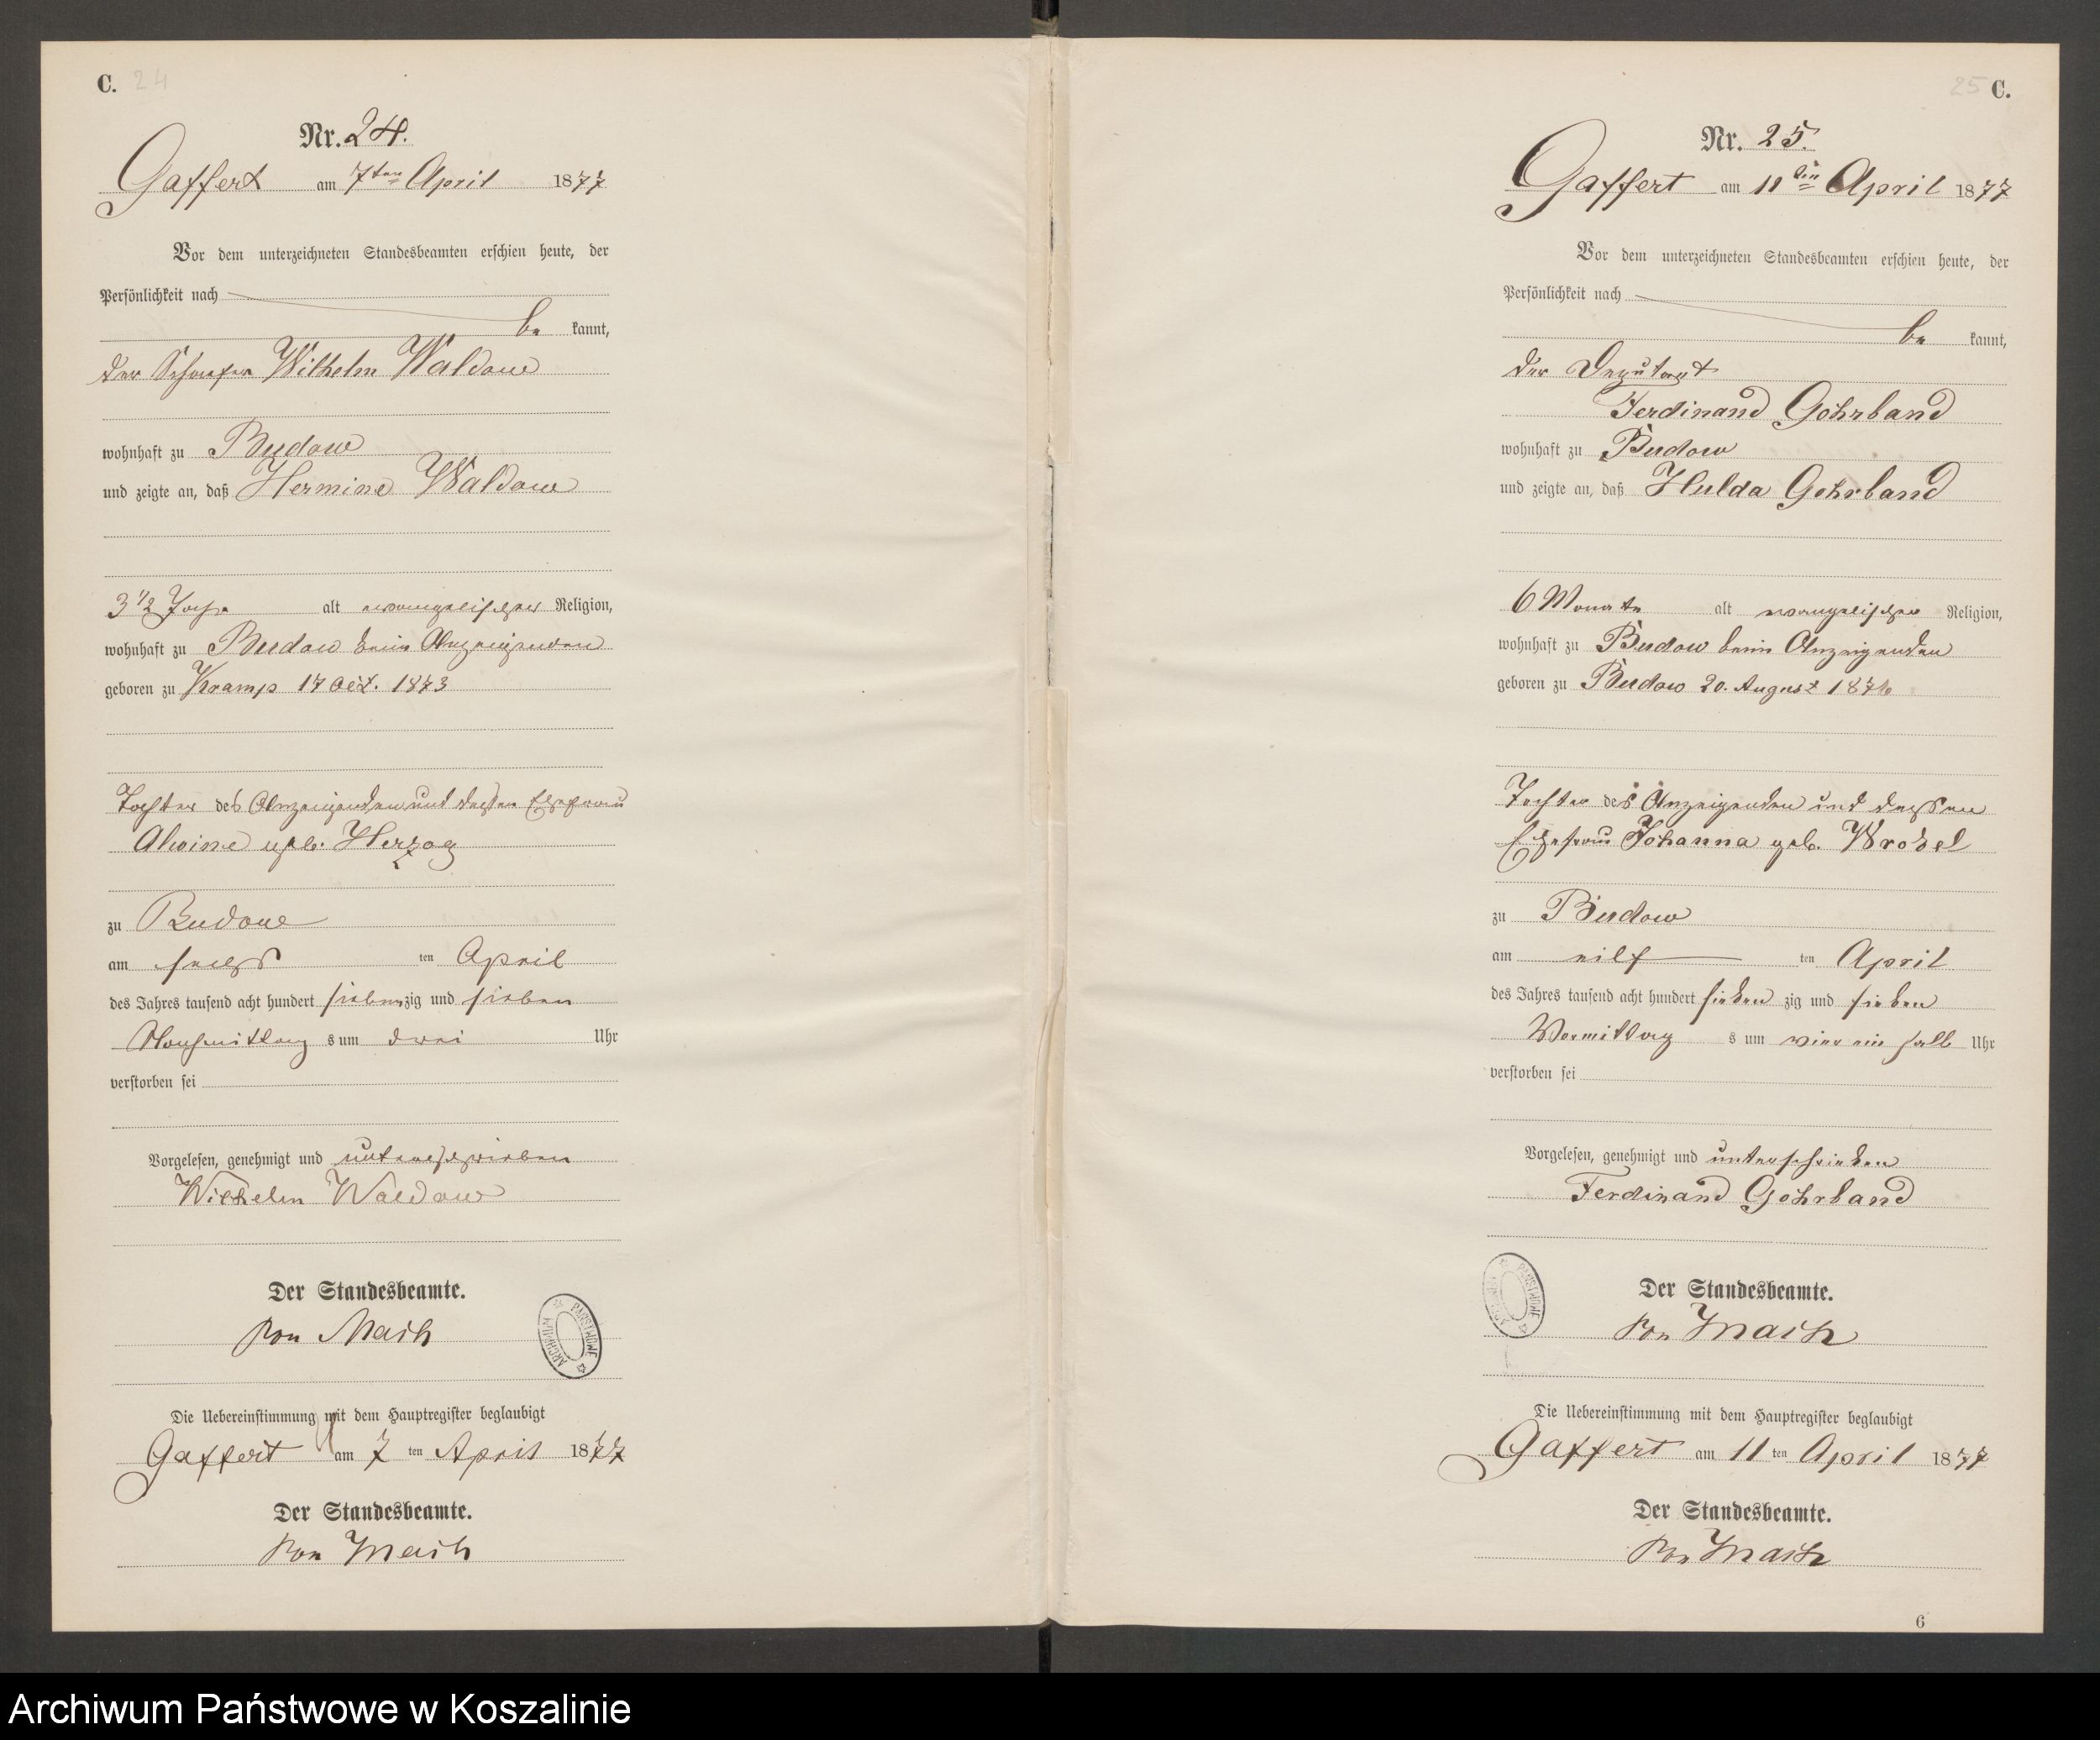 C. 24
Nr. 24.
Gaffert am 7ten April 1877
Vor dem unterzeichneten Standesbeamten erschien heute, der
Persönlichkeit nach
be kannt,
der Schaefer Wilhelm Waldow
wohnhaft zu Budow
und zeigte an, daß Hermine Waldow
3 1/2 Jahr alt evangelischer Religion,
wohnhaft zu Budow beim Anzeigenden
geboren zu Kramp 17 Oct. 1873
Tochter des Anzeigenden und dessen Ehefrau
Alwine geb. Herzog
zu Budow
am sechs ten April
des Jahres tausend acht hundert siebenzig und sieben
Nachmittag s um drei Uhr
verstorben sei
Vorgelesen, genehmigt und unterschrieben
Wilhelm Waldow
Der Standesbeamte.
von Mach
ARCHIWUM PAŃSTWOWE
Die Uebereinstimmung mit dem Hauptregister beglaubigt
Gaffert am 7 ten April 1877
Der Standesbeamte.
von Mach
25 C.
Nr. 25.
Gaffert am 11ten April 1877
Vor dem unterzeichneten Standesbeamten erschien heute, der
Persönlichkeit nach
be kannt,
der Deputant
Ferdinand Gohrband
wohnhaft zu Budow
und zeigte an, daß Hulda Gohrband
6 Monate alt evangelischer Religion,
wohnhaft zu Budow beim Anzeigenden
geboren zu Budow 20. August 1876
Tochter des Anzeigenden und dessen
Ehefrau Johanna geb. Wrobel
zu Budow
am eilf ten April
des Jahres tausend acht hundert sieben zig und sieben
Vormittag s um vier ein halb Uhr
verstorben sei
Vorgelesen, genehmigt und unterschrieben
Ferdinand Gohrband
Der Standesbeamte.
von Mach
ARCHIWUM PAŃSTWOWE
Die Uebereinstimmung mit dem Hauptregister beglaubigt
Gaffert am 11 ten April 1877
Der Standesbeamte.
von Mach
6
Archiwum Państwowe w Koszalinie